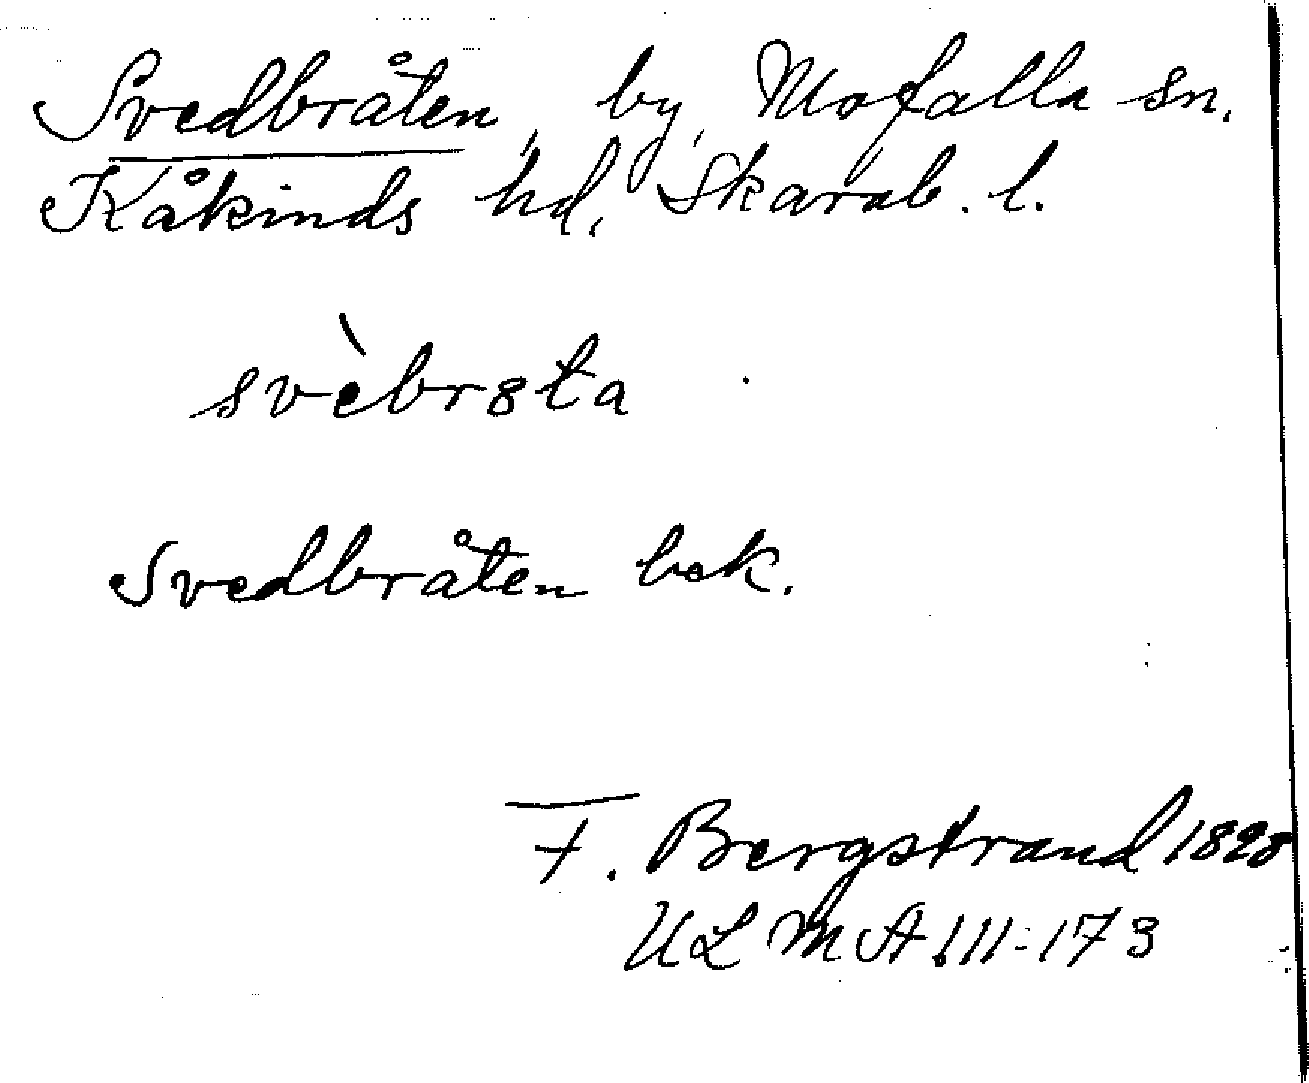 Svedbråten, by, Mofalla sn.
Kåkinds hd, Skarab. l.
svèbr8ta
Svedbråten bek.
F. Bergstrand 1898
ULMA 111:173